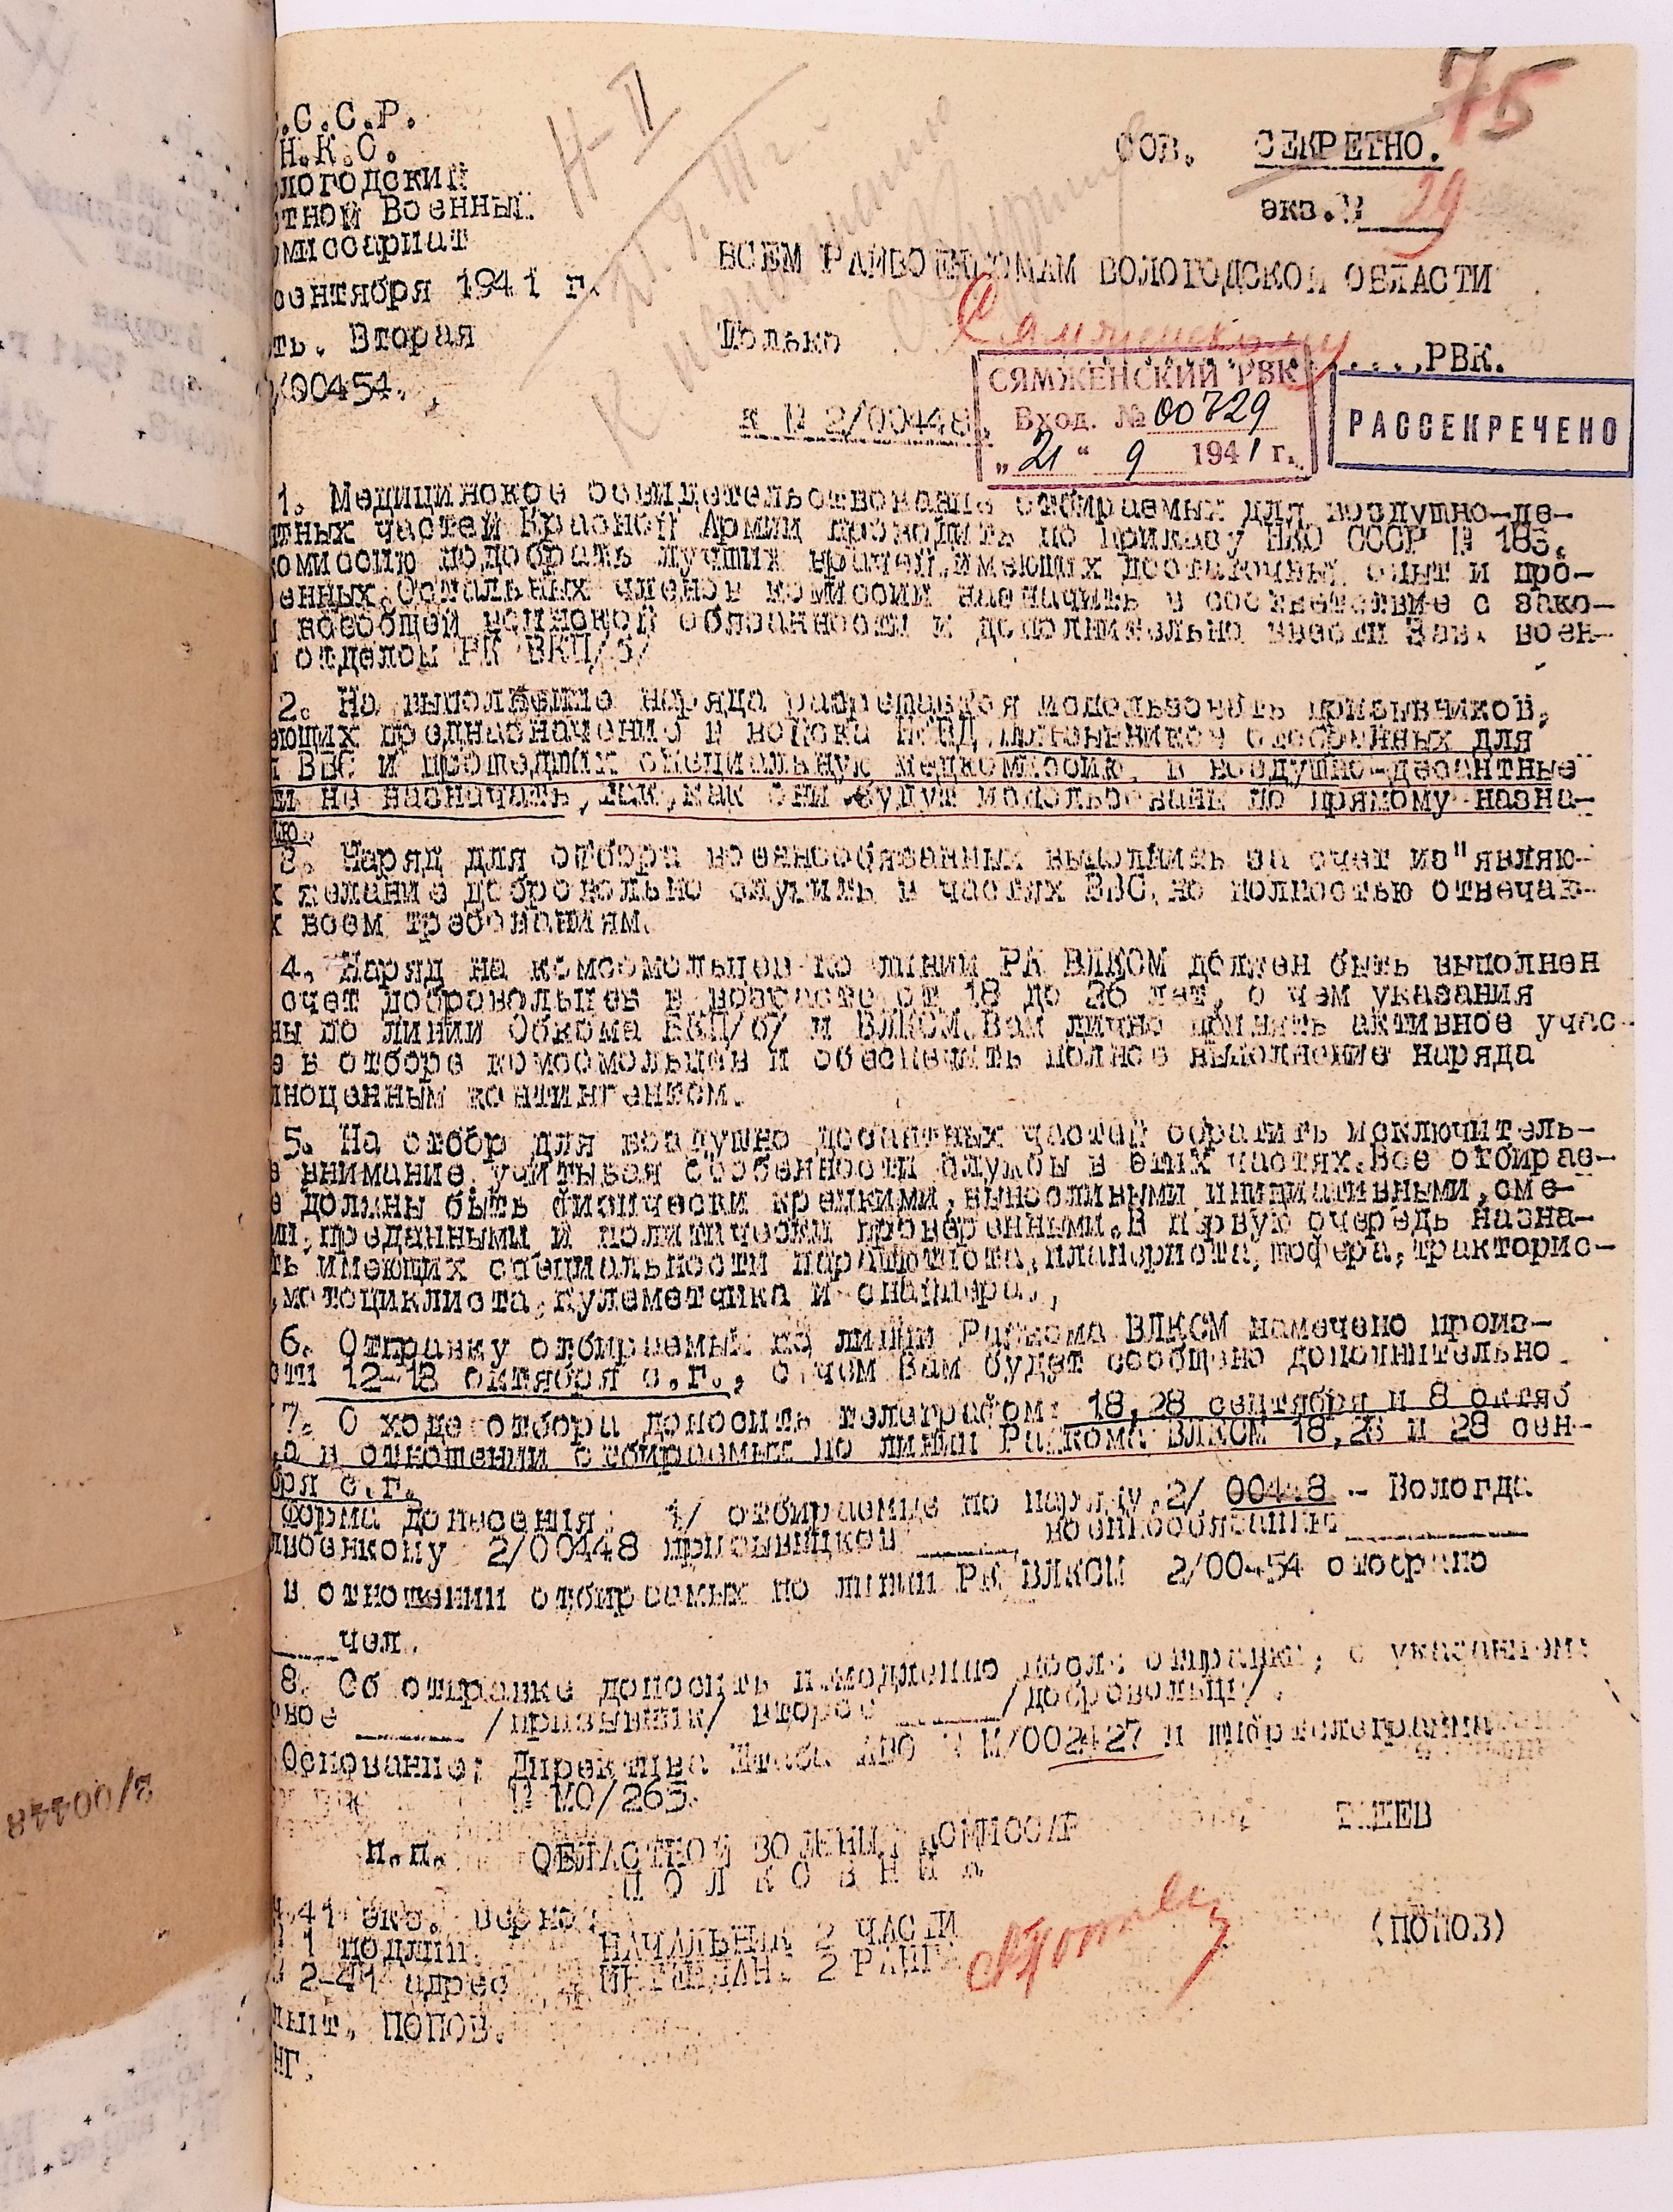 75
.С.С.Р.
Н.К.О.
ологодский
стной Военный
омиссариат
сентября 1941 г.
ть. Вторая
/00454.
Н-II
21.9.
К исполнению
СОВ. СЕКРЕТНО.
экз.№ 29
ВСЕМ РАЙВОЕНКОМАМ ВОЛОГОДСКОЙ ОБЛАСТИ
Только Сямженскому ....,РВК.
к № 2/00448.
СЯМЖЕНСКИЙ РВК
Вход. № 00729
„21“ 9 1941 г.
РАССЕКРЕЧЕНО
1. Медицинское освидетельствование отбираемых для воздушно-де-
тных частей Красной Армии проводить по приказу НКО СССР № 183.
омиссию подобрать лучших врачей, имеющих достаточный опыт и про-
енных. Остальных членов комиссии назначить в соответствие с зако-
всеобщей воинской обязанности и дополнительно ввести Зав. воен-
отделом РК ВКП/б/
2. На выполнение наряда разрешается использовать призывников,
еющих предназначение в войска НКВД, призывников отобранных для
ВВС и прошедших специальную медкомиссию, в воздушно-десантные
и не назначать, так, как они будут использованы по прямому назна-
ию.
3. Наряд для отбора военнообязанных выполнить за счет из"являю-
х желание добровольно служить в частях ВВС, но полностью отвечаю-
х всем требованиям.
4. Наряд на комсомольцев по линии РК ВЛКСМ должен быть выполнен
счет добровольцев в возрасте от 18 до 26 лет, о чем указания
ны по линии Обкома ВКП/б/ и ВЛКСМ. Вам лично принять активное учас-
е в отборе комсомольцев и обеспечить полное выполнение наряда
лноценным контингентом.
5. На отбор для воздушно десантных частей обратить исключитель-
е внимание, учитывая особенности службы в этих частях. Все отбирае-
е должны быть физически крепкими, выносливыми инициативными, сме-
ми, преданными и политически проверенными. В первую очередь назна-
ть имеющих специальности парашютиста, планериста, шофера, тракторис-
, мотоциклиста, пулеметчика и снайпера.,
6. Отправку отбираемых по линии Райкома ВЛКСМ намечено произ-
ети 12-18 октября с.г., о чем Вам будет сообщено дополнительно.
7. О ходе отбора доносить телеграфом: 18,28 сентября и 8 октяб
,а в отношении отбираемых по линии Райкома ВЛКСМ 18,23 и 28 сен-
бря с.г.
Форма донесения: 1/ отбираемые по наряду 2/ 00448 - Вологда
лвоенкому 2/00448 призывников ____, военнообязанных ________
в отношении отбираемых по линии РК ВЛКСМ 2/00454 отобрано
____чел.
8. Об отправке доносить немедленно после отправки, с указанием:
вое _____ /призывник/ второе ____/добровольцы/.
Основание: Директива Штаба АВО № М/002427 и шифротелеграмма
№ МО/265.
п.п. ОБЛАСТНОЙ ВОЕННЫЙ КОМИССАР
ПОЛКОВНИК
.41 экз. верно:
1 подлин. НАЧАЛЬНИК 2 ЧАСТИ (ПОПОВ)
2-41 адрес ИНТЕНДАНТ 2 РАНГА
лнит. ПОПОВ.
НГ.
2/00448